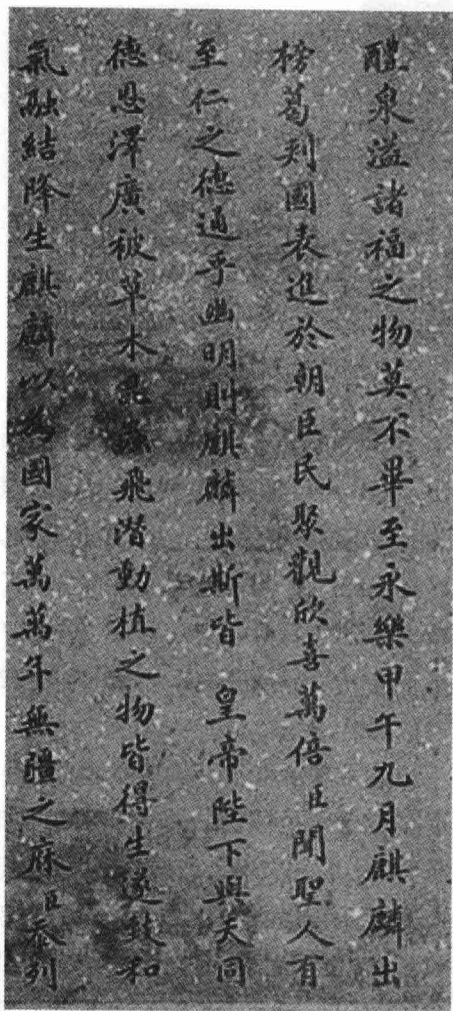 醴泉溢諸福之物莫不畢至永樂甲午九月麒麟出
榜葛剌國表進於朝臣民聚觀欣喜萬倍臣聞聖人有
至仁之德通乎幽明則麒麟出斯皆 皇帝陛下與天同
德恩澤廣被草木昆蟲飛潛動植之物皆得生遂故和
氣融結降生麒麟以為國家萬萬年無疆之庥臣忝列